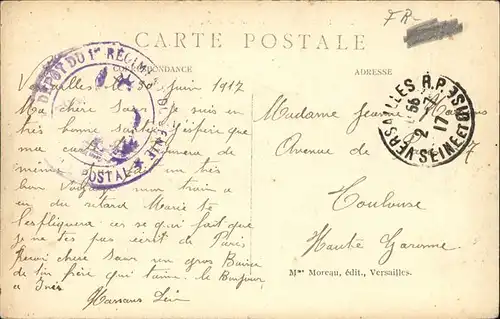 FR-
CARTE POSTALE
CORRESPONDANCE
ADRESSE
DÉPÔT DU 1er RÉGIMENT DU GÉNIE
POSTAL
VERSAILLES R.P. SEINE ET OISE
17
Versailles le 30 Juin 1917
Ma chère Sœur Je suis en
très bonne santé j'espère que
de
même très
bon Voyage mon train a
eu du retard Marie te
l'expliquera ces se qui fait que
je ne tes pas écrit de Paris
chère Sœur un gros Baiser
de ton frère qui taime. le Bonjour
a Inès
Massans Léon
Madame Jeanne
Avenue de 7
Toulouse
Haute Garonne
Mme Moreau, édit., Versailles.